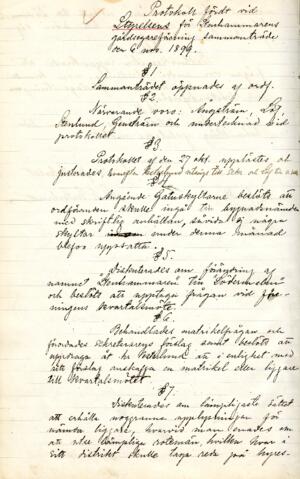 Protokoll fördt vid
Styrelsens för Stenhammarens
gårdsegareförening sammanträde
den 6 nov. 1899.
§1.
Sammanträdet öppnades af ordf.
§2.
Närvarande voro: Ångström, Löf
Stenlund, Genström och undertecknad vid
protokollet
§3.
Protokollet af den 27 okt. upplästes, o.
justerades
§4.
Angående Gatuskyltarne beslöts att
ordföranden skulle ingå till byggnadsnämnden
med skriftlig anhållan, såvida ej några
skyltar under denna månad
blefvo uppsatta.
§5.
Diskuterades om förändring af
namnet Stenhammaren till Södermalm
och beslöts att upptaga frågan vid före-
ningens kvartalsmöte.
§6.
Behandlades matrikelfrågan och
förordades sekreterarens förslag samt beslöts att
uppdraga åt hr Berglund att i enlighet med
sitt förslag anskaffa en matrikel eller liggare
till kvartalsmötet
§7.
Diskuterades om lämpligaste sättet
att erhålla noggranna upplysningar för
nämnda liggare, hvarvid man enades om
att utse lämpliga rotemän, hvilka hvar i
sitt distrikt skulle taga reda på hyres-